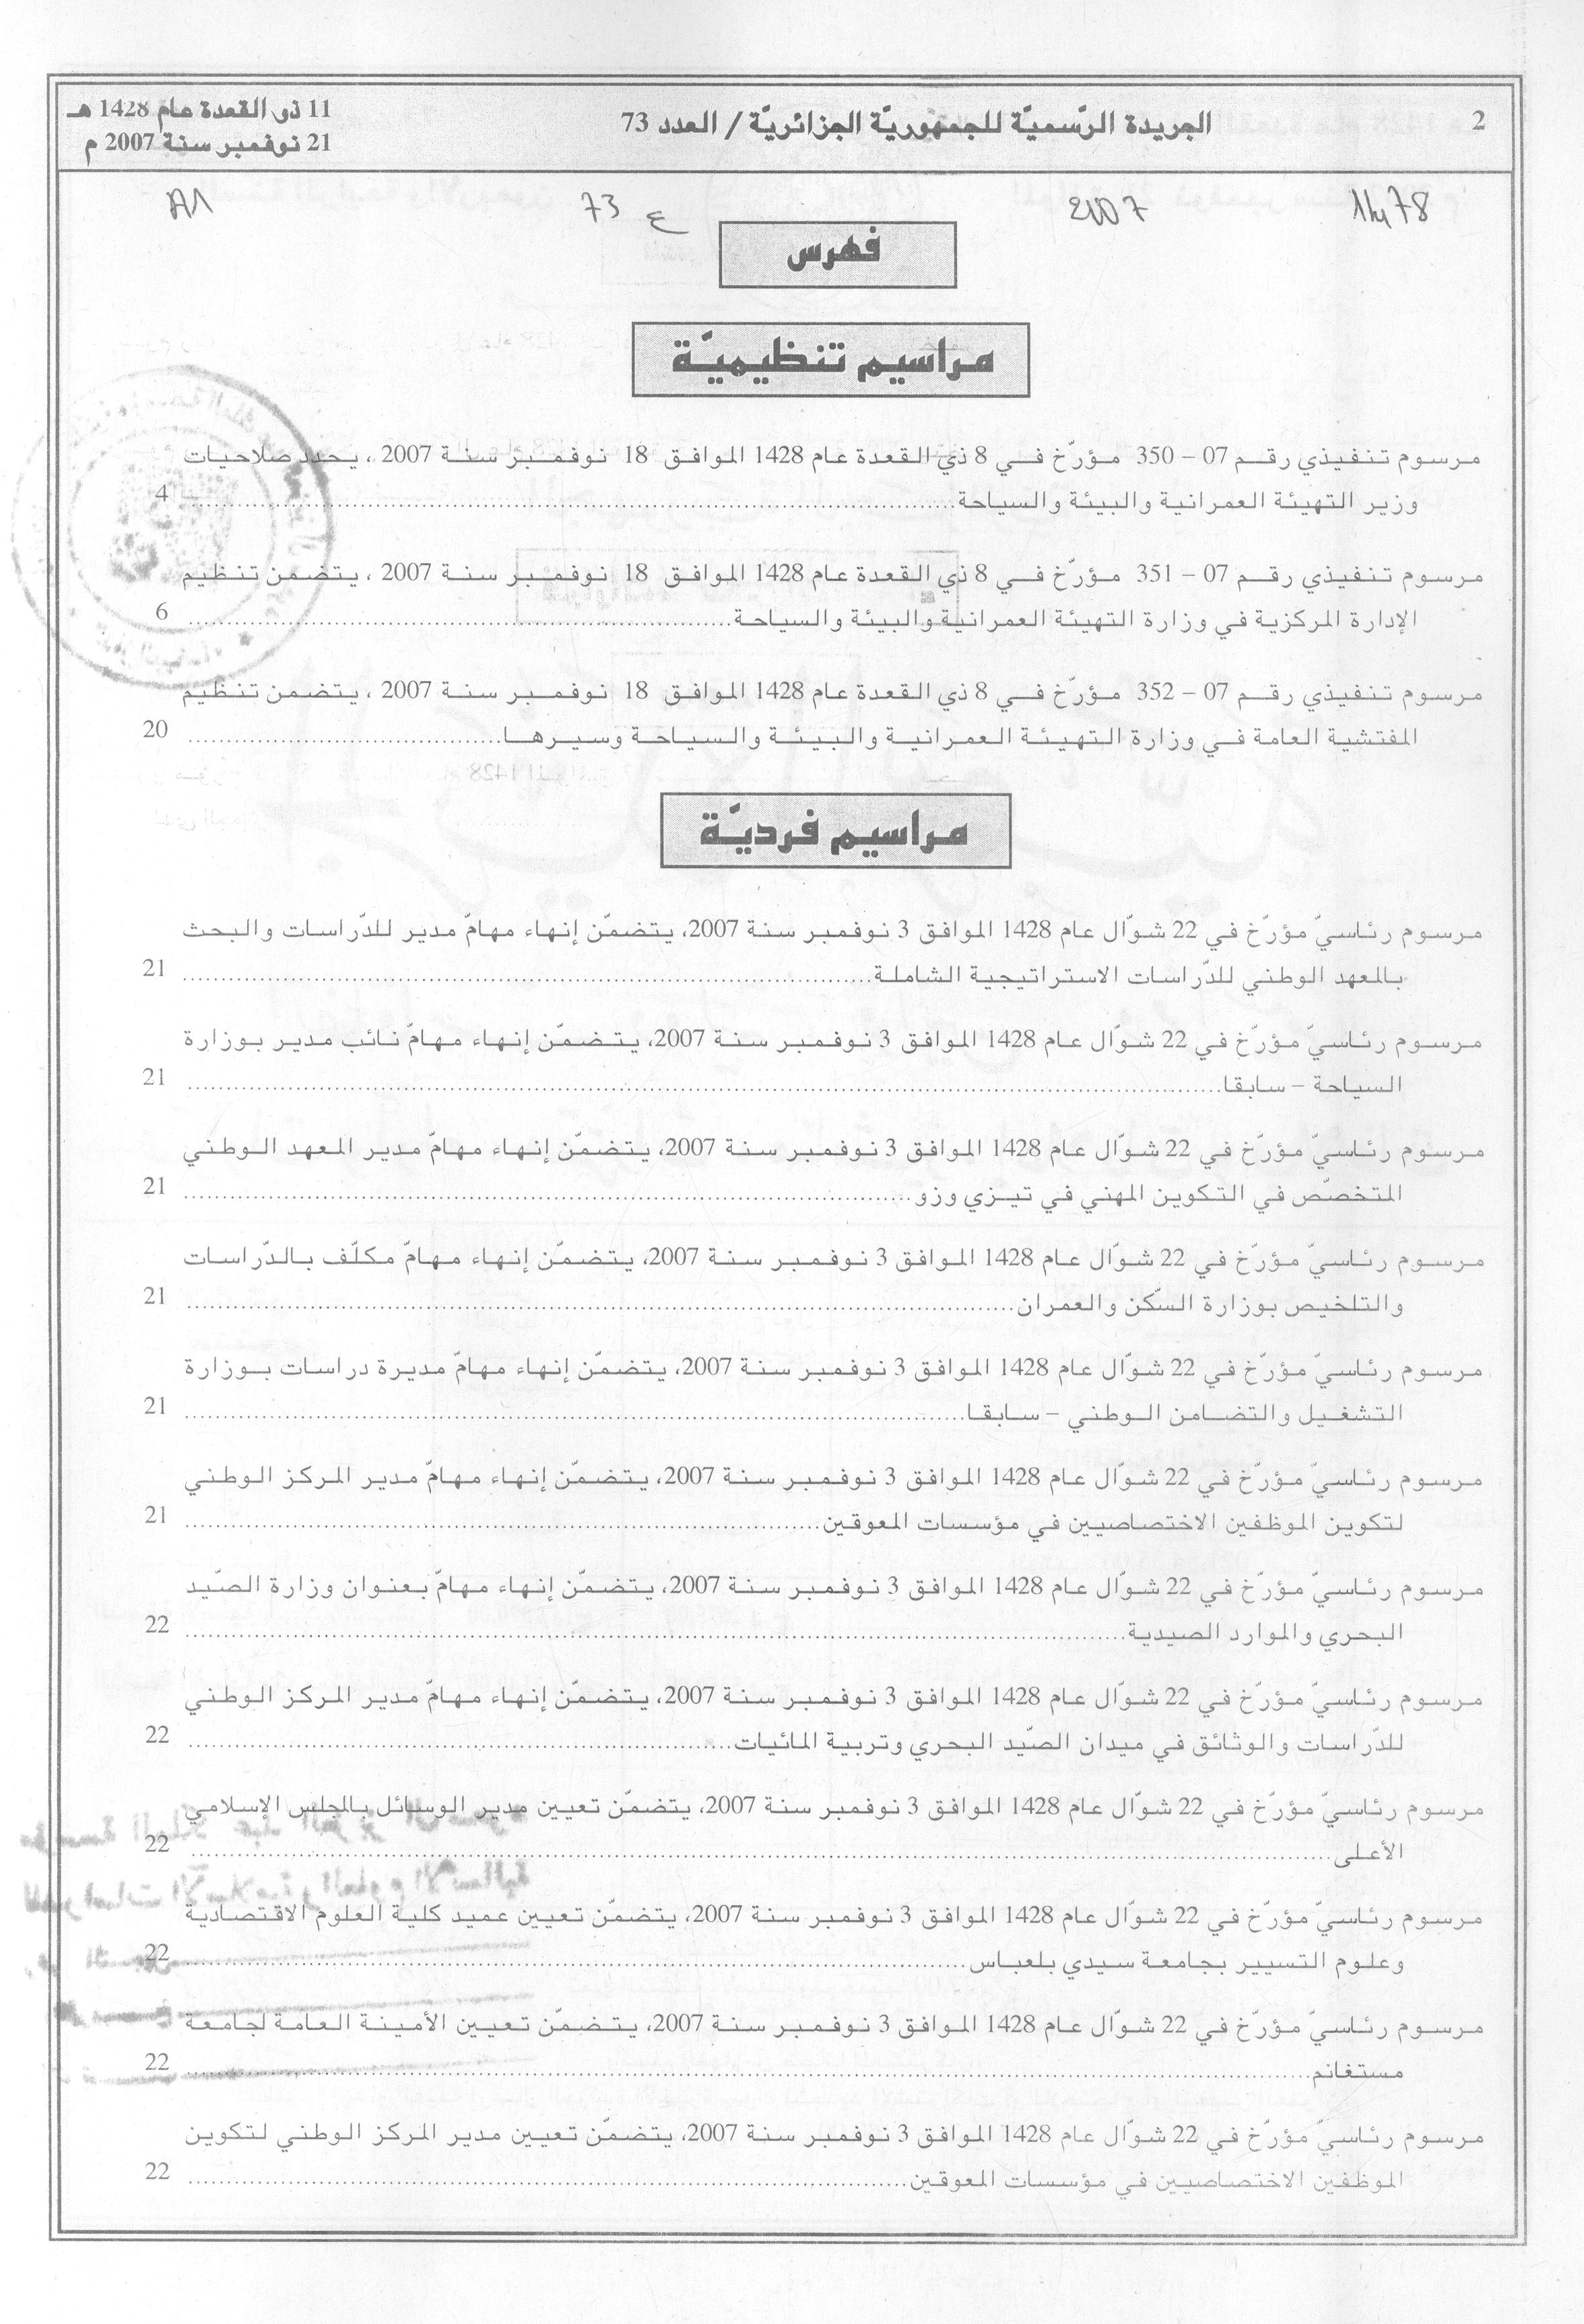 2
الجريدة الرّسميّة للجمهوريّة الجزائريّة / العدد 73
11 ذو القعدة عام 1428 هـ
21 نوفمبر سنة 2007 م
1478 2007 ع 73 A1
فهرس
مراسيم تنظيميّة
مرسوم تنفيذي رقم 07 – 350 مؤرّخ في 8 ذي القعدة عام 1428 الموافق 18 نوفمبر سنة 2007 ، يحدد صلاحيات
وزير التهيئة العمرانية والبيئة والسياحة........ 4
مرسوم تنفيذي رقم 07 – 351 مؤرّخ في 8 ذي القعدة عام 1428 الموافق 18 نوفمبر سنة 2007 ، يتضمن تنظيم
الإدارة المركزية في وزارة التهيئة العمرانية والبيئة والسياحة........ 6
مرسوم تنفيذي رقم 07 – 352 مؤرّخ في 8 ذي القعدة عام 1428 الموافق 18 نوفمبر سنة 2007 ، يتضمن تنظيم
المفتشية العامة في وزارة التهيئة العمرانية والبيئة والسياحة وسيرها........ 20
مراسيم فرديّة
مرسوم رئاسيّ مؤرّخ في 22 شوّال عام 1428 الموافق 3 نوفمبر سنة 2007، يتضمّن إنهاء مهامّ مدير للدّراسات والبحث
بالمعهد الوطني للدّراسات الاستراتيجية الشاملة........ 21
مرسوم رئاسيّ مؤرّخ في 22 شوّال عام 1428 الموافق 3 نوفمبر سنة 2007، يتضمّن إنهاء مهامّ نائب مدير بوزارة
السياحة – سابقا........ 21
مرسوم رئاسيّ مؤرّخ في 22 شوّال عام 1428 الموافق 3 نوفمبر سنة 2007، يتضمّن إنهاء مهامّ مدير المعهد الوطني
المتخصّص في التكوين المهني في تيزي وزو........ 21
مرسوم رئاسيّ مؤرّخ في 22 شوّال عام 1428 الموافق 3 نوفمبر سنة 2007، يتضمّن إنهاء مهامّ مكلّف بالدّراسات
والتلخيص بوزارة السّكن والعمران........ 21
مرسوم رئاسيّ مؤرّخ في 22 شوّال عام 1428 الموافق 3 نوفمبر سنة 2007، يتضمّن إنهاء مهامّ مديرة دراسات بوزارة
التشغيل والتضامن الوطني – سابقا........ 21
مرسوم رئاسيّ مؤرّخ في 22 شوّال عام 1428 الموافق 3 نوفمبر سنة 2007، يتضمّن إنهاء مهامّ مدير المركز الوطني
لتكوين الموظفين الاختصاصيين في مؤسسات المعوقين........ 21
مرسوم رئاسيّ مؤرّخ في 22 شوّال عام 1428 الموافق 3 نوفمبر سنة 2007، يتضمّن إنهاء مهامّ بعنوان وزارة الصّيد
البحري والموارد الصيدية........ 22
مرسوم رئاسيّ مؤرّخ في 22 شوّال عام 1428 الموافق 3 نوفمبر سنة 2007، يتضمّن إنهاء مهامّ مدير المركز الوطني
للدّراسات والوثائق في ميدان الصّيد البحري وتربية المائيات........ 22
مرسوم رئاسيّ مؤرّخ في 22 شوّال عام 1428 الموافق 3 نوفمبر سنة 2007، يتضمّن تعيين مدير الوسائل بالمجلس الإسلامي
الأعلى........ 22
مرسوم رئاسيّ مؤرّخ في 22 شوّال عام 1428 الموافق 3 نوفمبر سنة 2007، يتضمّن تعيين عميد كلية العلوم الاقتصادية
وعلوم التسيير بجامعة سيدي بلعباس........ 22
مرسوم رئاسيّ مؤرّخ في 22 شوّال عام 1428 الموافق 3 نوفمبر سنة 2007، يتضمّن تعيين الأمينة العامة لجامعة
مستغانم........ 22
مرسوم رئاسيّ مؤرّخ في 22 شوّال عام 1428 الموافق 3 نوفمبر سنة 2007، يتضمّن تعيين مدير المركز الوطني لتكوين
الموظفين الاختصاصيين في مؤسسات المعوقين........ 22